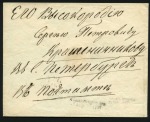 Его Высокородію
Сергѣю Петровичу
Крашенинникову
Въ С. Петербургѣ
Въ Почтамтѣ